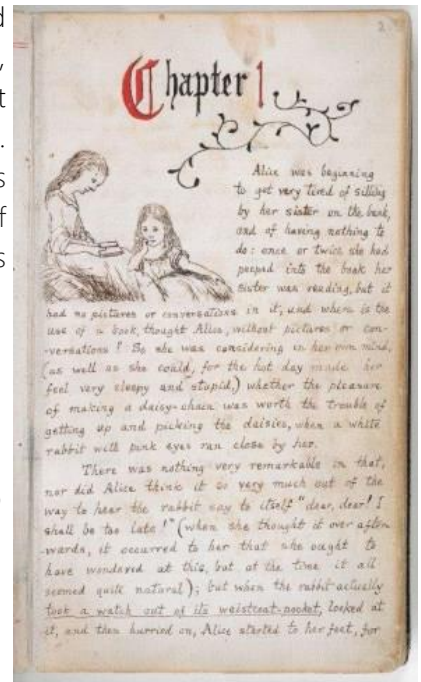 d
,
t
.
s
f
s
2
Chapter 1
Alice was beginning
to get very tired of sitting
by her sister on the bank,
and of having nothing to
do: once or twice she had
peeped into the book her
sister was reading, but it
had no pictures or conversations in it, and where is the
use of a book, thought Alice, without pictures or con-
versations? So she was considering in her own mind,
(as well as she could, for the hot day made her
feel very sleepy and stupid,) whether the pleasure
of making a daisy-chain was worth the trouble of
getting up and picking the daisies, when a white
rabbit with pink eyes ran close by her.
There was nothing very remarkable in that,
nor did Alice think it so very much out of the
way to hear the rabbit say to itself "dear, dear! I
shall be too late!" (when she thought it over after-
-wards, it occurred to her that she ought to
have wondered at this, but at the time it all
seemed quite natural); but when the rabbit actually
took a watch out of its waistcoat-pocket, looked at
it, and then hurried on, Alice started to her feet, for